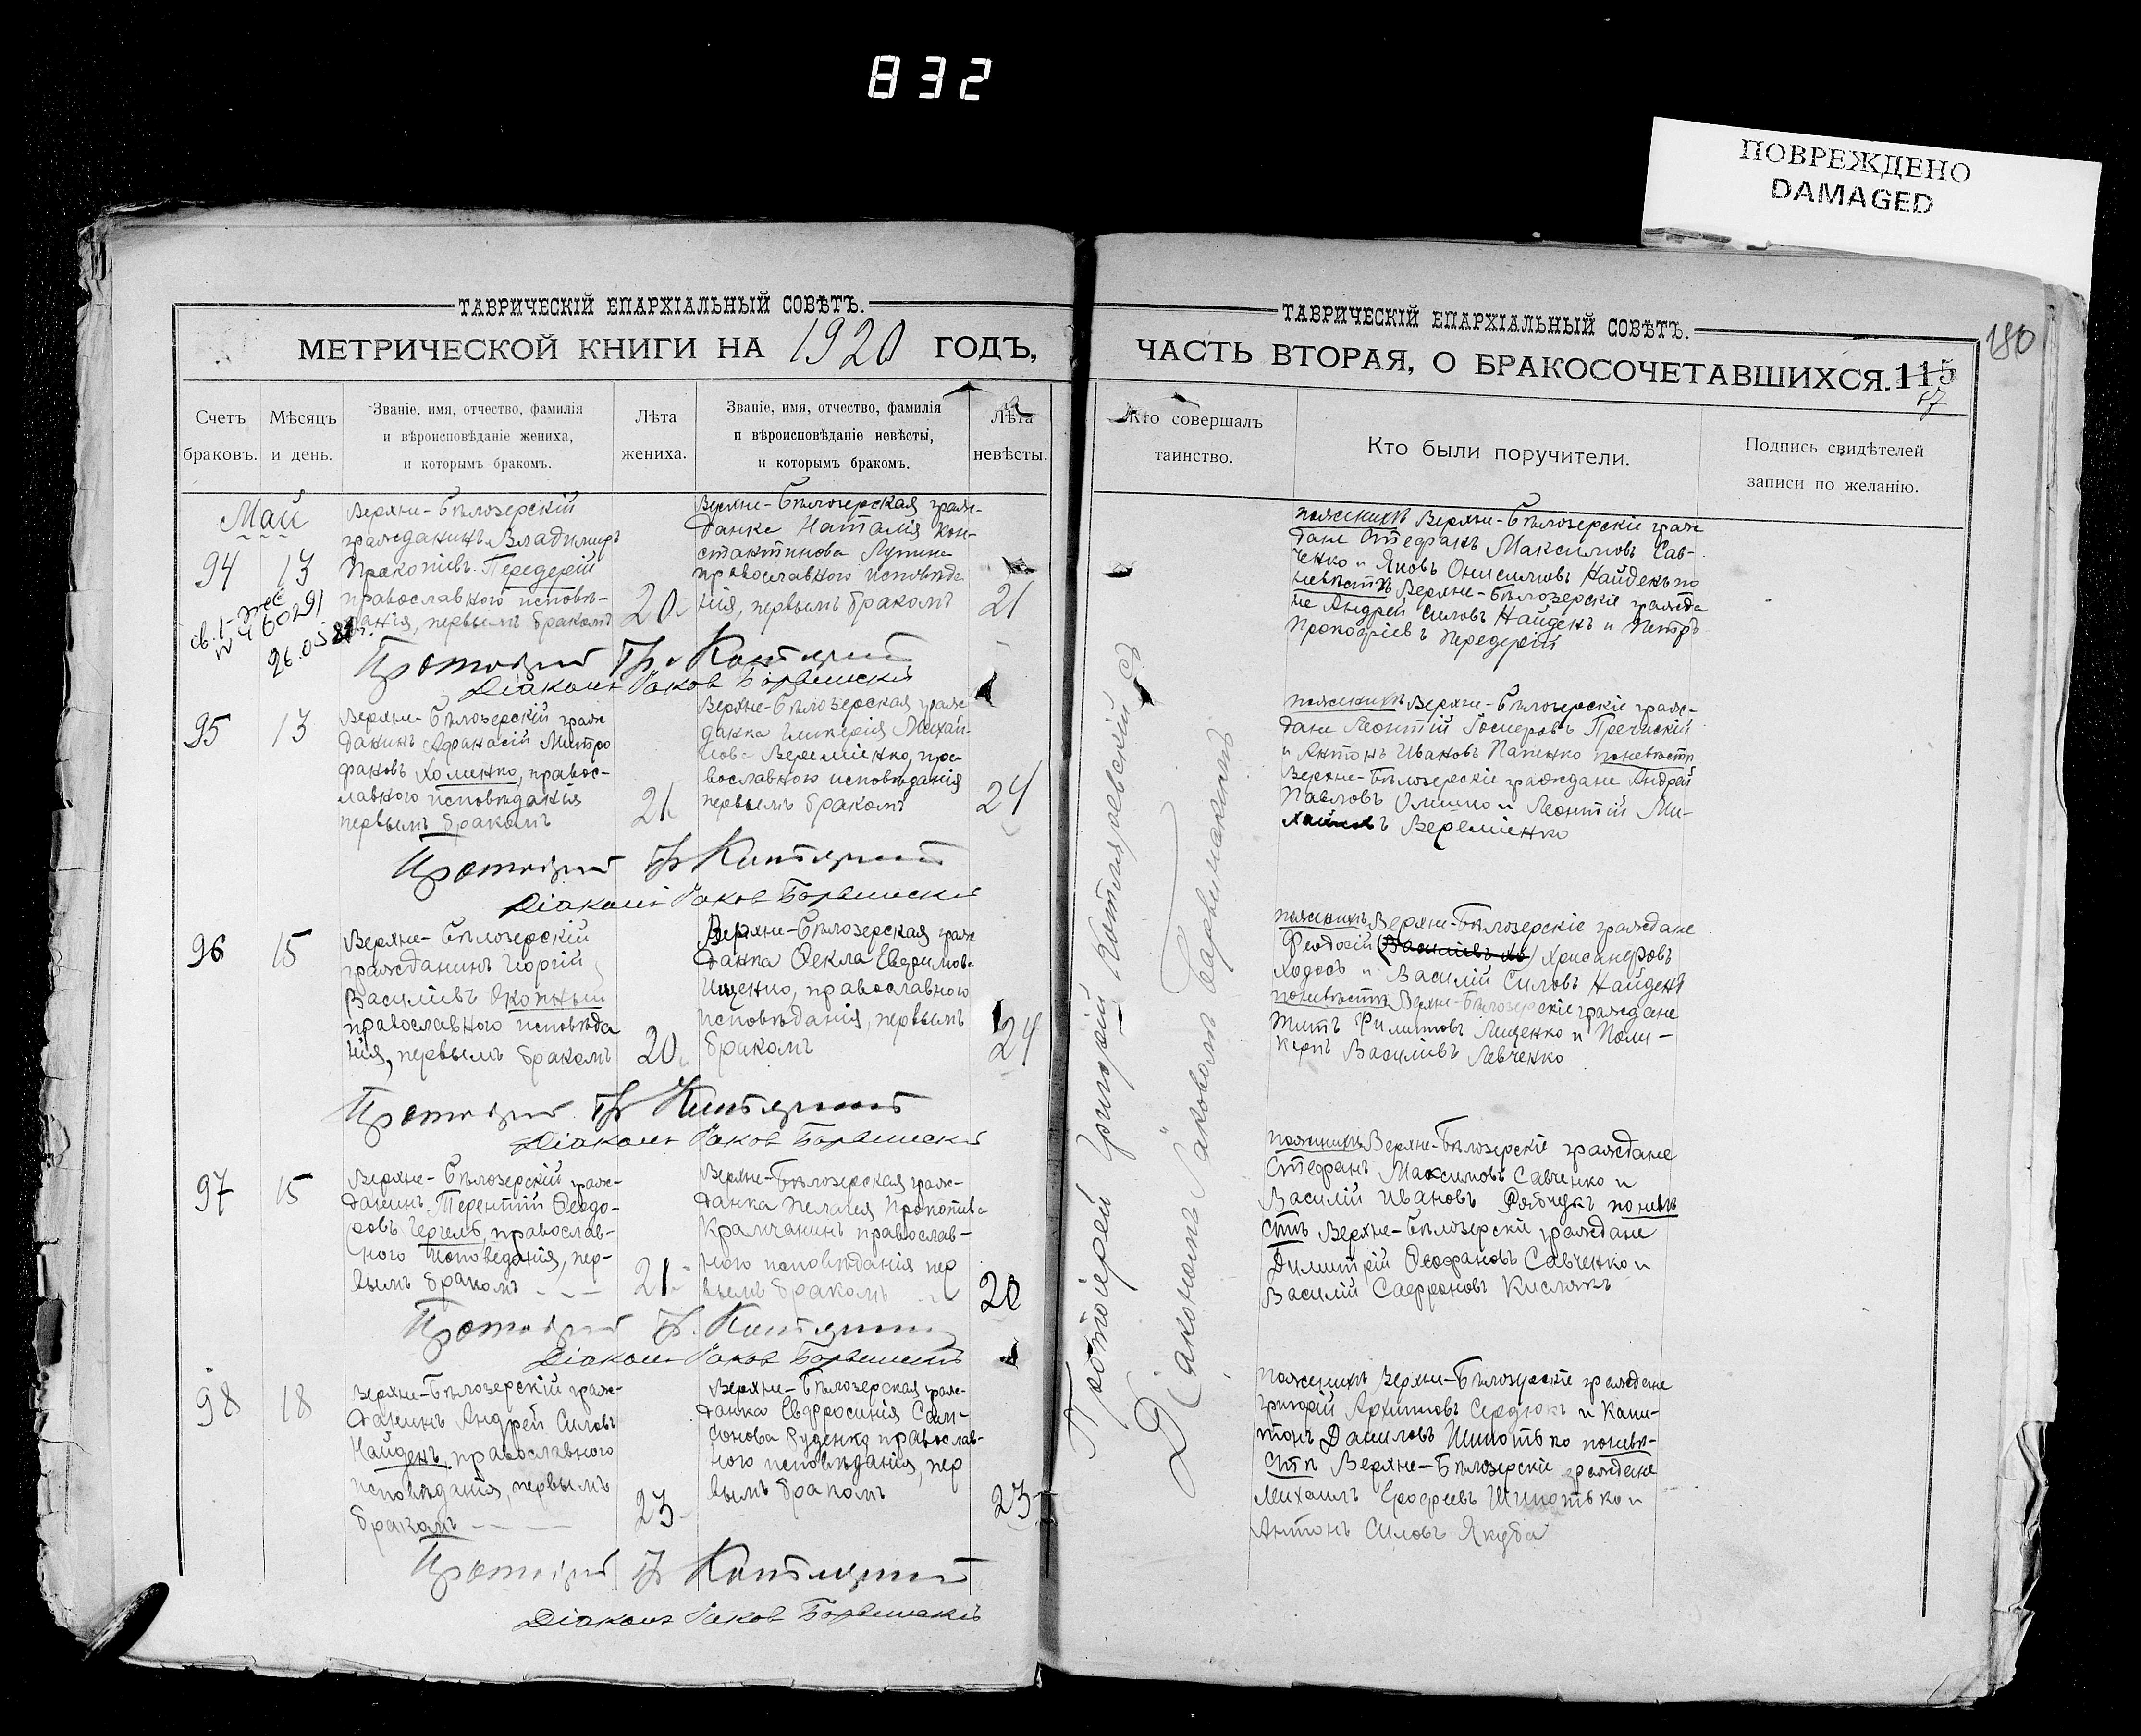 832
ПОВРЕЖДЕНО
DAMAGED
ТАВРИЧЕСКІЙ ЕПАРХІАЛЬНЫЙ СОВѢТЪ.
МЕТРИЧЕСКОЙ КНИГИ НА 1920 ГОДЪ,
Счетъ браковъ.
Мѣсяцъ и день.
Званіе, имя, отчество, фамилія
и вѣроисповѣданіе жениха,
и которымъ бракомъ.
Лѣта жениха.
Званіе, имя, отчество, фамилія
и вѣроисповѣданіе невѣсты,
и которымъ бракомъ.
Лѣта невѣсты.
Май
94 13
Верхне-Бѣлозерскій
гражданинъ Владимиръ
Прокопіевъ Передерій
православнаго исповѣ-
данія, первымъ бракомъ
20
Верхне-Бѣлозерская граж-
данка Наталія Кон-
стантинова
православного исповѣда
нія, первымъ бракомъ
21
Протоіерей Гр. 
Діаконъ Іаковъ
95 13
Верхне-Бѣлозерскій граж
данинъ Афанасій Митро
фановъ Хоменко, правос-
лавного исповѣданія
первымъ бракомъ
21
Верхне-Бѣлозерская граж
данка Гликерія Михай-
лова Веремѣенко, пра-
вославного исповѣданія
первымъ бракомъ
24
Протоіерей Гр.
Діаконъ Іаковъ
96 15
Верхне-Бѣлозерскій
гражданинъ Георгій
Василіевъ Окопный
православного исповѣда
нія, первымъ бракомъ
20
Верхне-Бѣлозерская граж
данка Фекла Евфимова
Ищенко, православного
исповѣданія, первымъ
бракомъ
24
Протоіерей Гр.
Діаконъ Іаковъ
97 15
Верхне-Бѣлозерскій граж-
данинъ Терентій Феодо-
ровъ, православ-
ного исповеданія, пер-
вымъ бракомъ
21
Верхне-Бѣлозерская граж-
данка Прокопіева
православ-
ного исповѣданія пер
вымъ бракомъ
20
Протоіерей Гр.
Діаконъ Іаковъ
98 18
Верхне-Бѣлозерскій граж-
данинъ Андрей Силовъ
Найденъ, православного
исповѣданія, первымъ
бракомъ
23
Верхне-Бѣлозерская граж-
данка Евфросинія Сам-
сонова Руденко православ-
ного исповѣданія, пер
вымъ бракомъ
23
Протоіерей Гр.
Діаконъ Іаковъ
ТАВРИЧЕСКІЙ ЕПАРХІАЛЬНЫЙ СОВѢТЪ.
180
ЧАСТЬ ВТОРАЯ, О БРАКОСОЧЕТАВШИХСЯ.
115
Кто совершалъ
таинство.
Кто были поручители.
Подпись свидѣтелей
записи по желанію.
Протоіерей Григорій
Діакономъ Іаковомъ
по женихѣ Верхне-Бѣлозерскіе граж
дане Стефанъ Максимовъ Сав-
ченко и Яковъ Онисимовъ Найденъ по
невѣстѣ Верхне-Бѣлозерскіе гражда
не Андрей Силовъ Найденъ и Петръ
Прокофіевъ Передерій
по женихѣ Верхне-Бѣлозерскіе граж-
дане Леонтій
и Антонъ Ивановъ по невѣстѣ
Верхне-Бѣлозерскіе граждане Андрей
Павловъ и Леонтій Ми-
хайловъ Веремѣенко
по женихѣ Верхне-Бѣлозерскіе граждане
Феодосій
Ходосъ и Василій Силовъ Найденъ
по невѣстѣ Верхне-Бѣлозерскіе граждане
Титъ Филиповъ Ищенко и Поли-
карпъ Василіевъ Левченко
по женихѣ Верхне-Бѣлозерскіе граждане
Стефанъ Максимовъ Савченко и
Василій Ивановъ Рябчукъ по невѣ
стѣ Верхне-Бѣлозерскіе граждане
Димитрій Феофановъ Савченко и
Василій Сафроновъ Кислякъ
по женихѣ Верхне-Бѣлозерскіе граждане
Григорій Архиповъ Сердюкъ и Капи-
тонъ Даниловъ Шипотько по невѣ-
стѣ Верхне-Бѣлозерскіе граждане
Михаилъ Ерофеевъ Шипотько и
Антонъ Силовъ Якуба